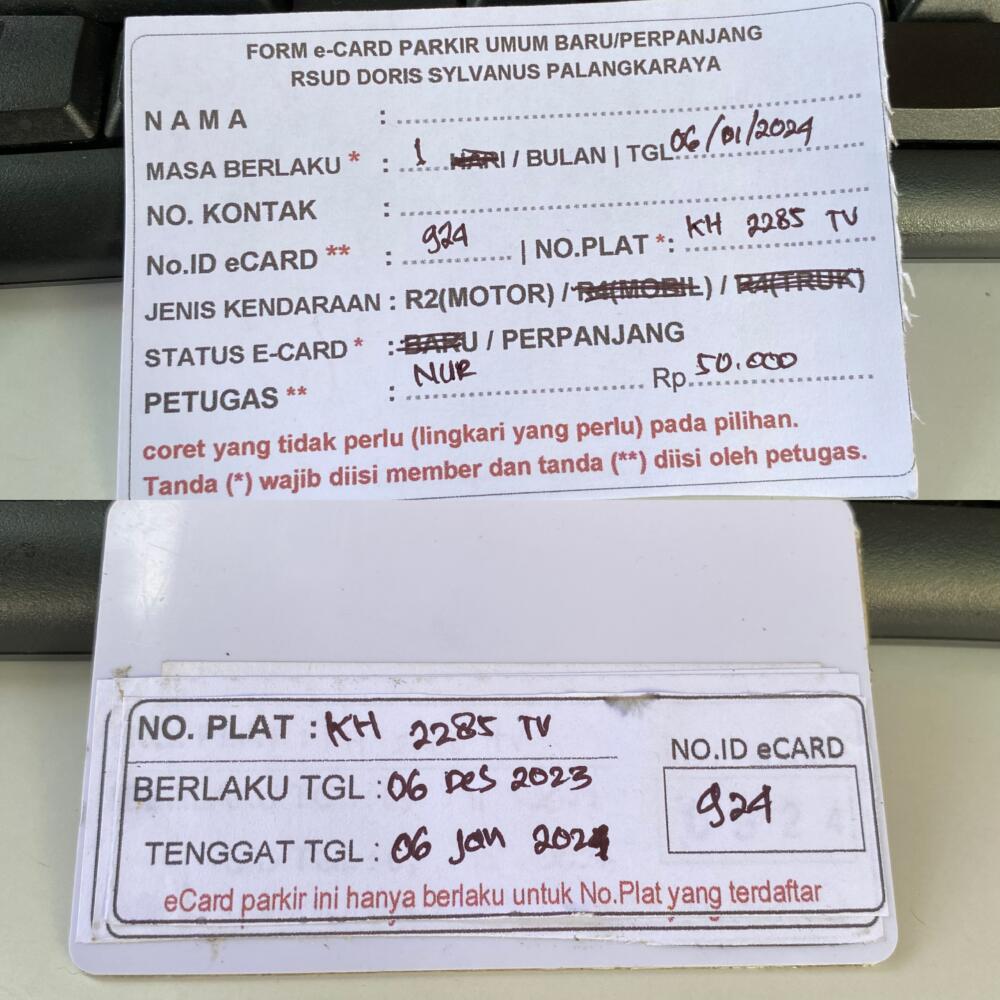 FORM e-CARD PARKIR UMUM BARU/PERPANJANG
RSUD DORIS SYLVANUS PALANGKARAYA
N A M A :
MASA BERLAKU * : 1 HARI / BULAN | TGL 06/01/2024
NO. KONTAK :
No.ID eCARD ** : 924 | NO.PLAT *: KH 2285 TV
JENIS KENDARAAN : R2(MOTOR) / R4(MOBIL) / R4(TRUK)
STATUS E-CARD * : BARU / PERPANJANG
PETUGAS ** : NUR Rp. 50.000
coret yang tidak perlu (lingkari yang perlu) pada pilihan.
Tanda (*) wajib diisi member dan tanda (**) diisi oleh petugas.
NO. PLAT : KH 2285 TV
NO.ID eCARD
BERLAKU TGL : 06 Des 2023
924
TENGGAT TGL : 06 Jan 2024
eCard parkir ini hanya berlaku untuk No.Plat yang terdaftar